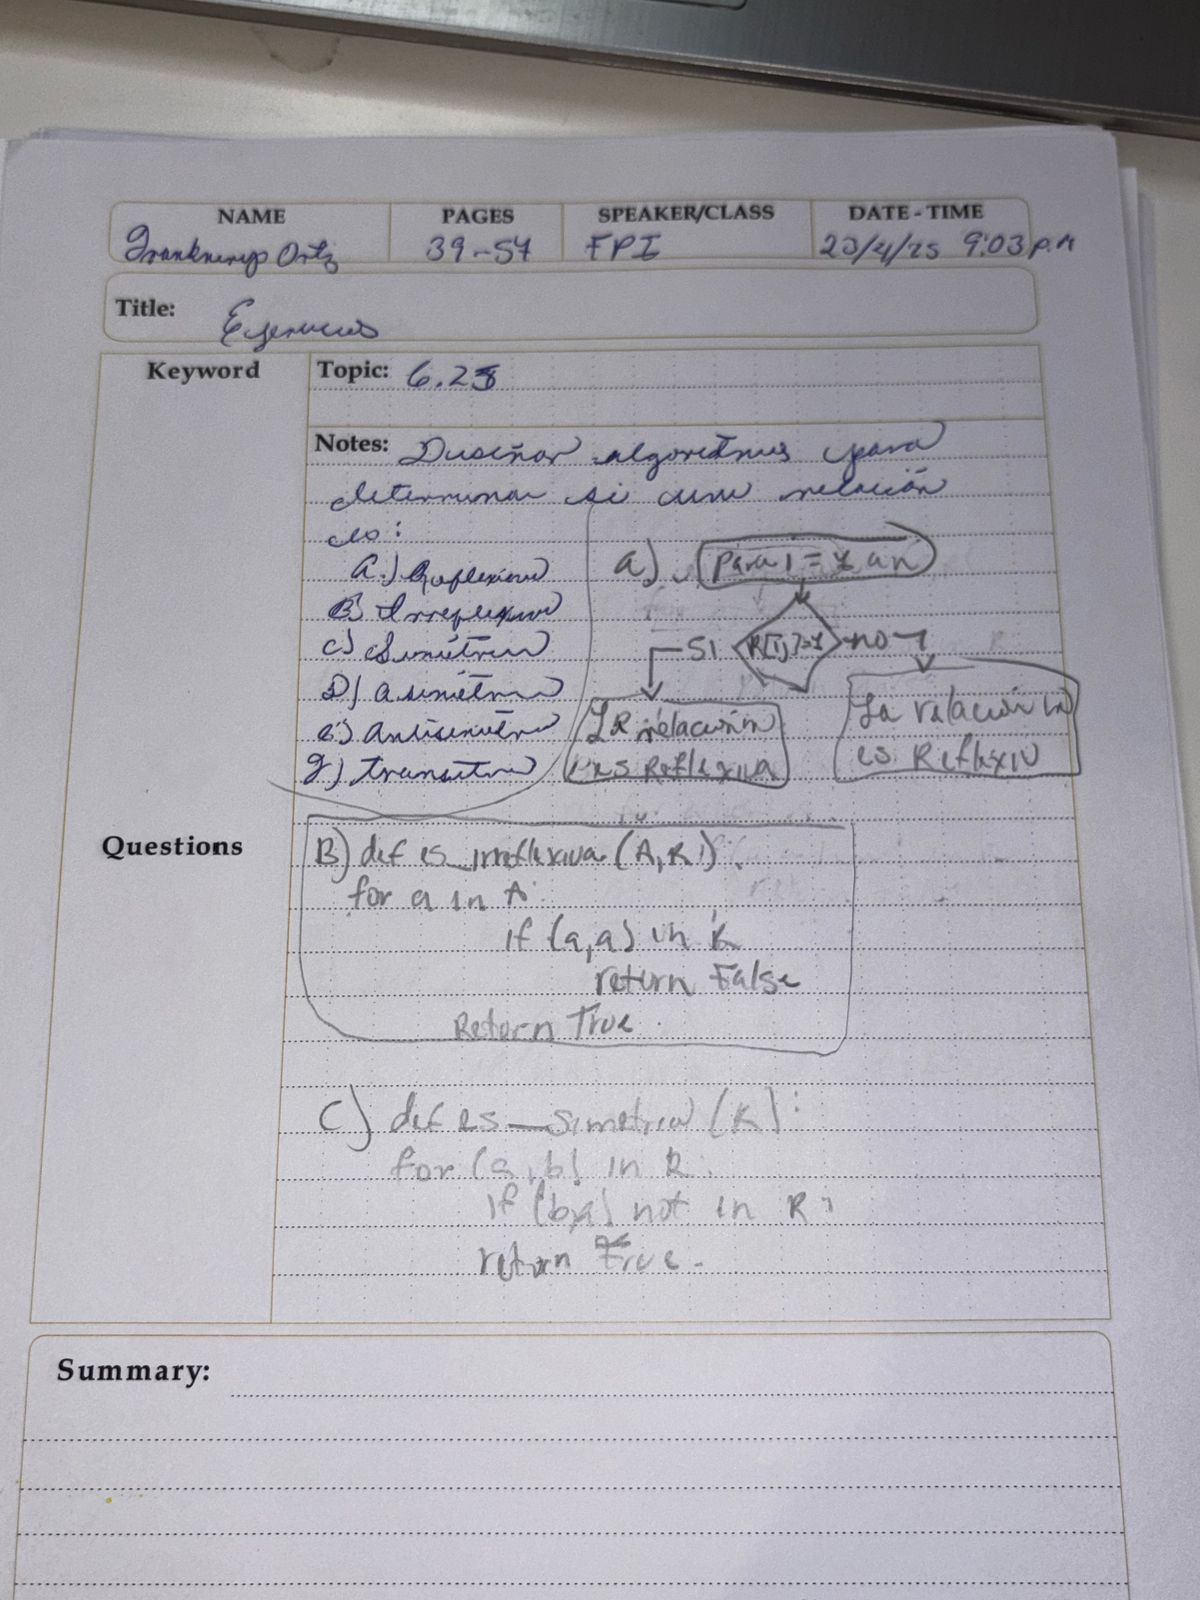 NAME PAGES SPEAKER/CLASS DATE - TIME
Ortiz 39-54 FPI 23/4/25 9:03 P.M
Title: Ejercicios
Keyword Topic: 6.28
Notes: Diseñar algoritmos para
determinar si una relación
es:
A.) Reflexiva
B) Irreflexiva
C) Simétrica
D) asimétrica
E) Antisimétrica
f) transitiva
a) Para i = 1 a n
SI R[i,i]=1 no
La relación
es Reflexiva
La relación no
es Reflexiv
Questions
B) def es_irreflexiva (A,R):
for a in A:
if (a,a) in R
return False
Return True.
C) def es_simetrica (R):
for (a,b) in R:
if (b,a) not in R:
return True.
Summary: